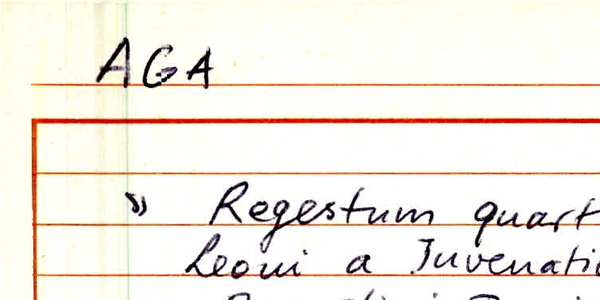 AGA
» Regestum quart
Leoni a Juvenati